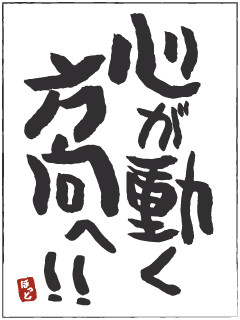 心が動く
方向へ!!
ほっと